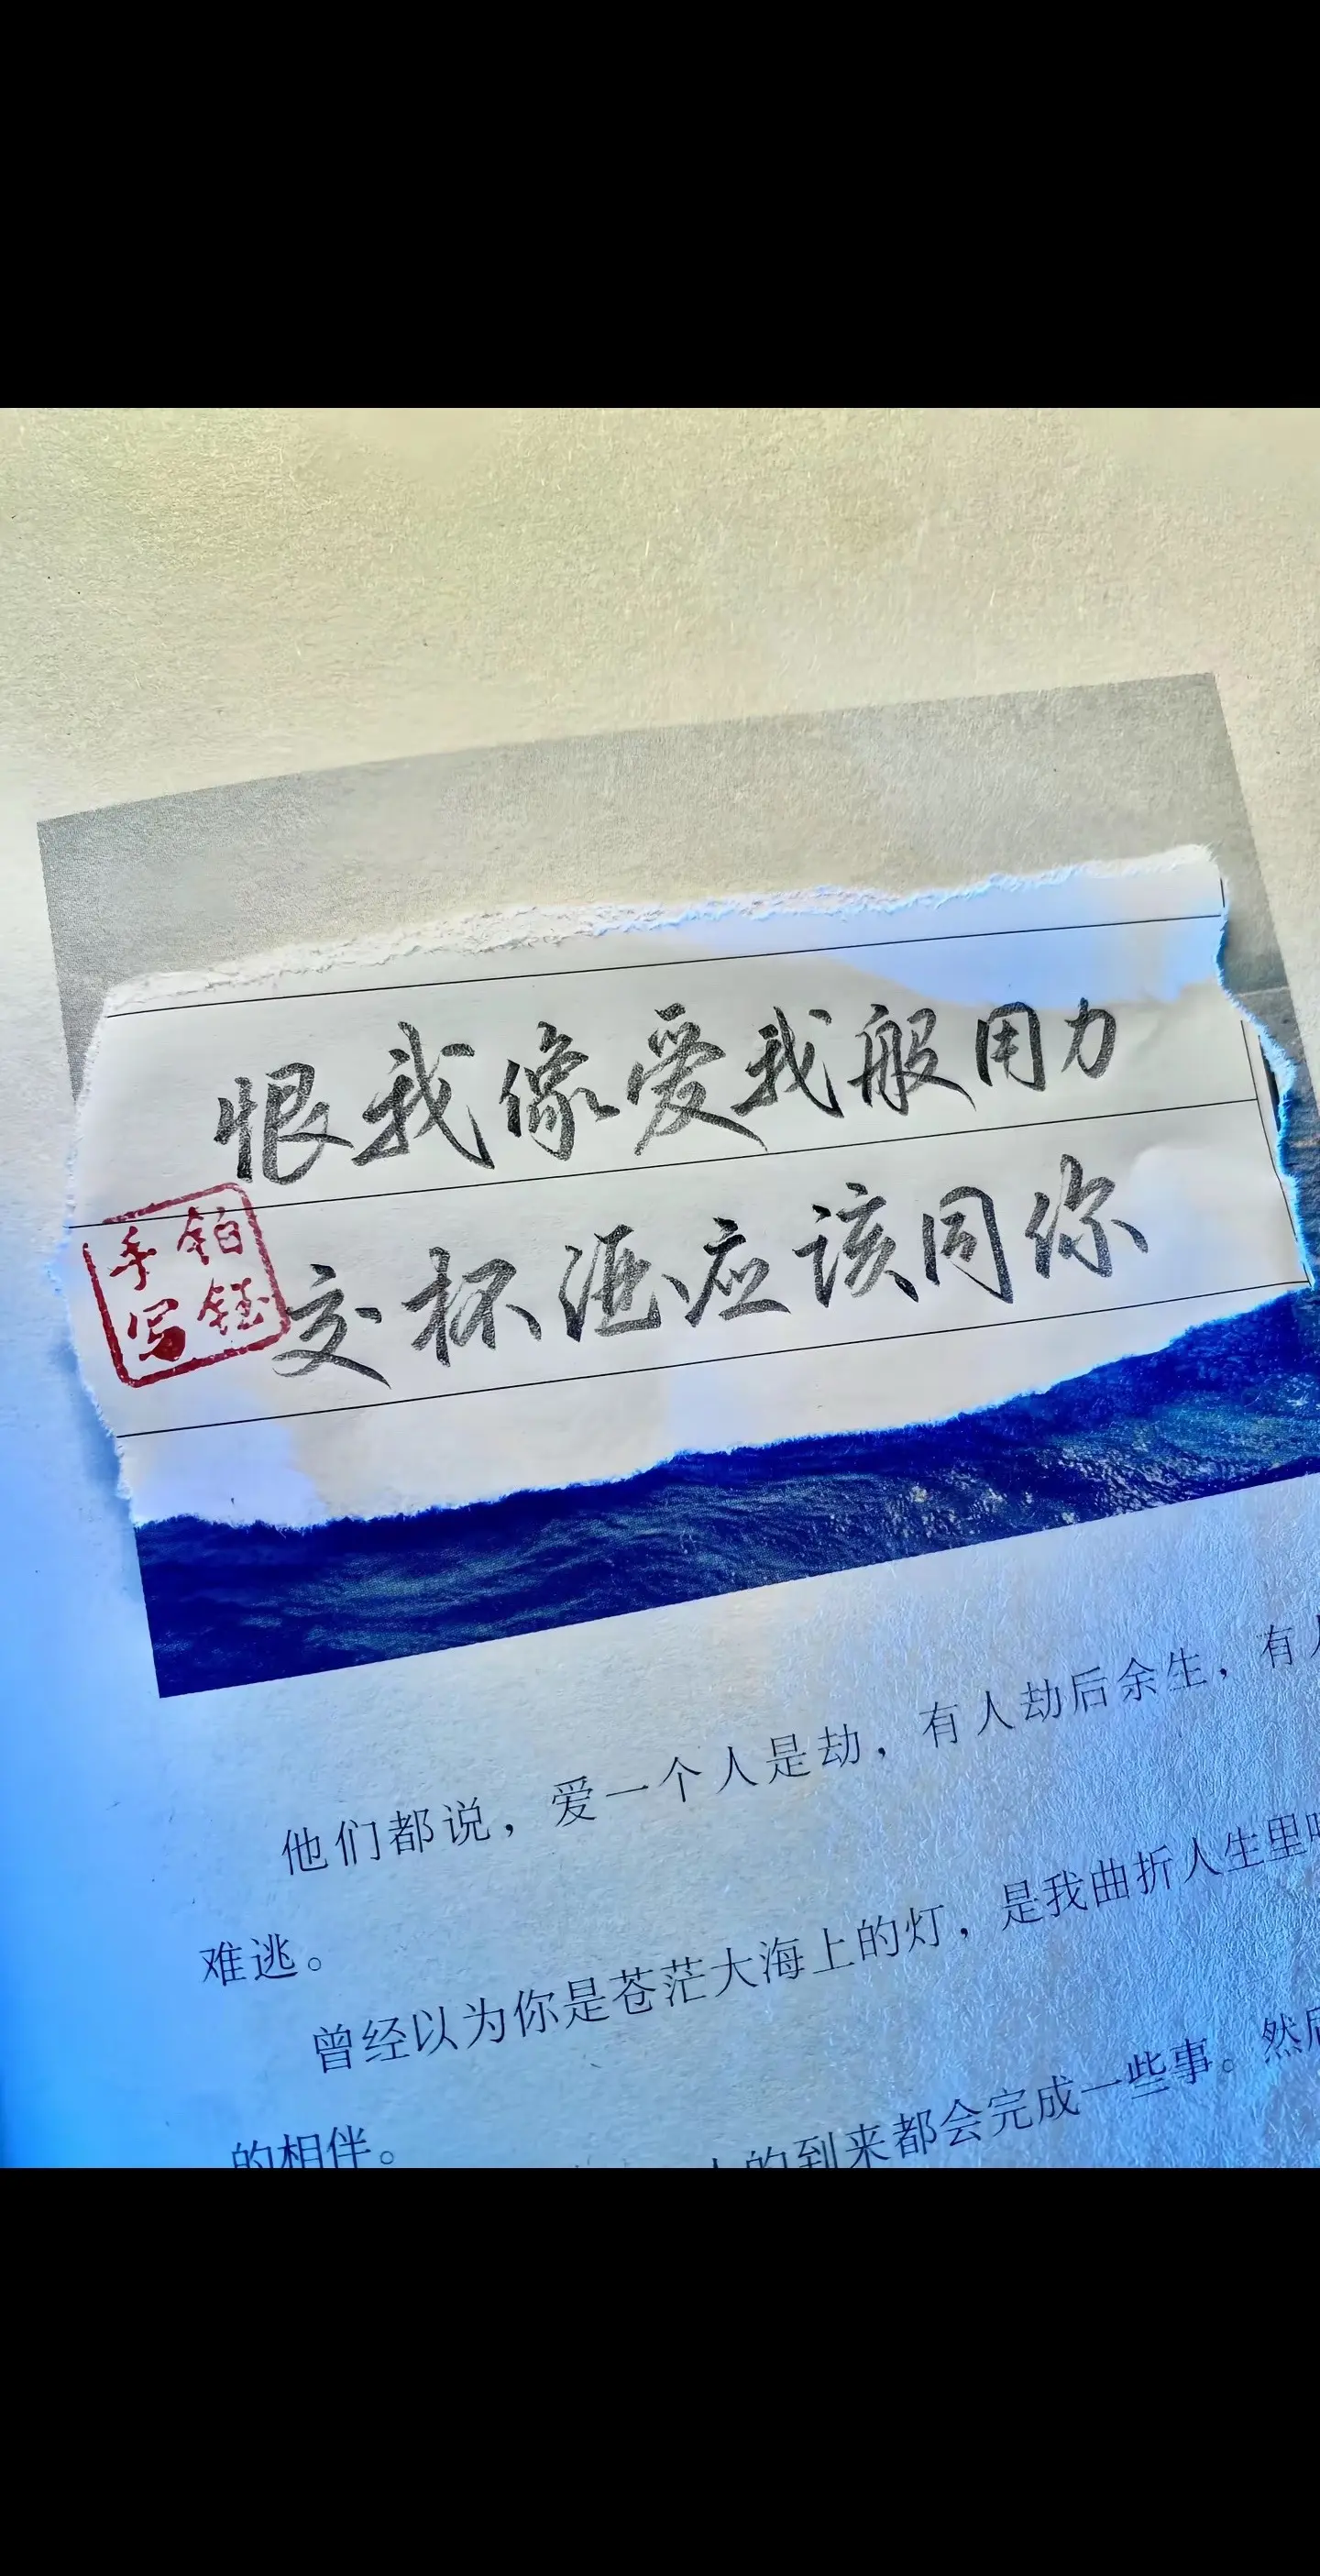 恨我像爱我般用力
交杯酒应该同你
铂钰
手写
他们都说，爱一个人是劫，有人劫后余生，有
难逃。
曾经以为你是苍茫大海上的灯，是我曲折人生里
的相伴。
的到来都会完成一些事。然